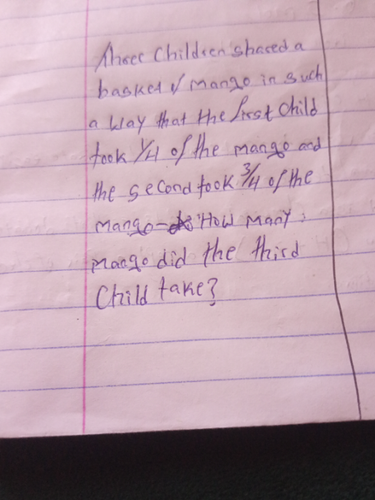 Three Children shared a
basket of mango in such
a way that the first child
took 1/4 of the mango and
the second took 3/4 of the
mango- How many
mango did the third
Child take?